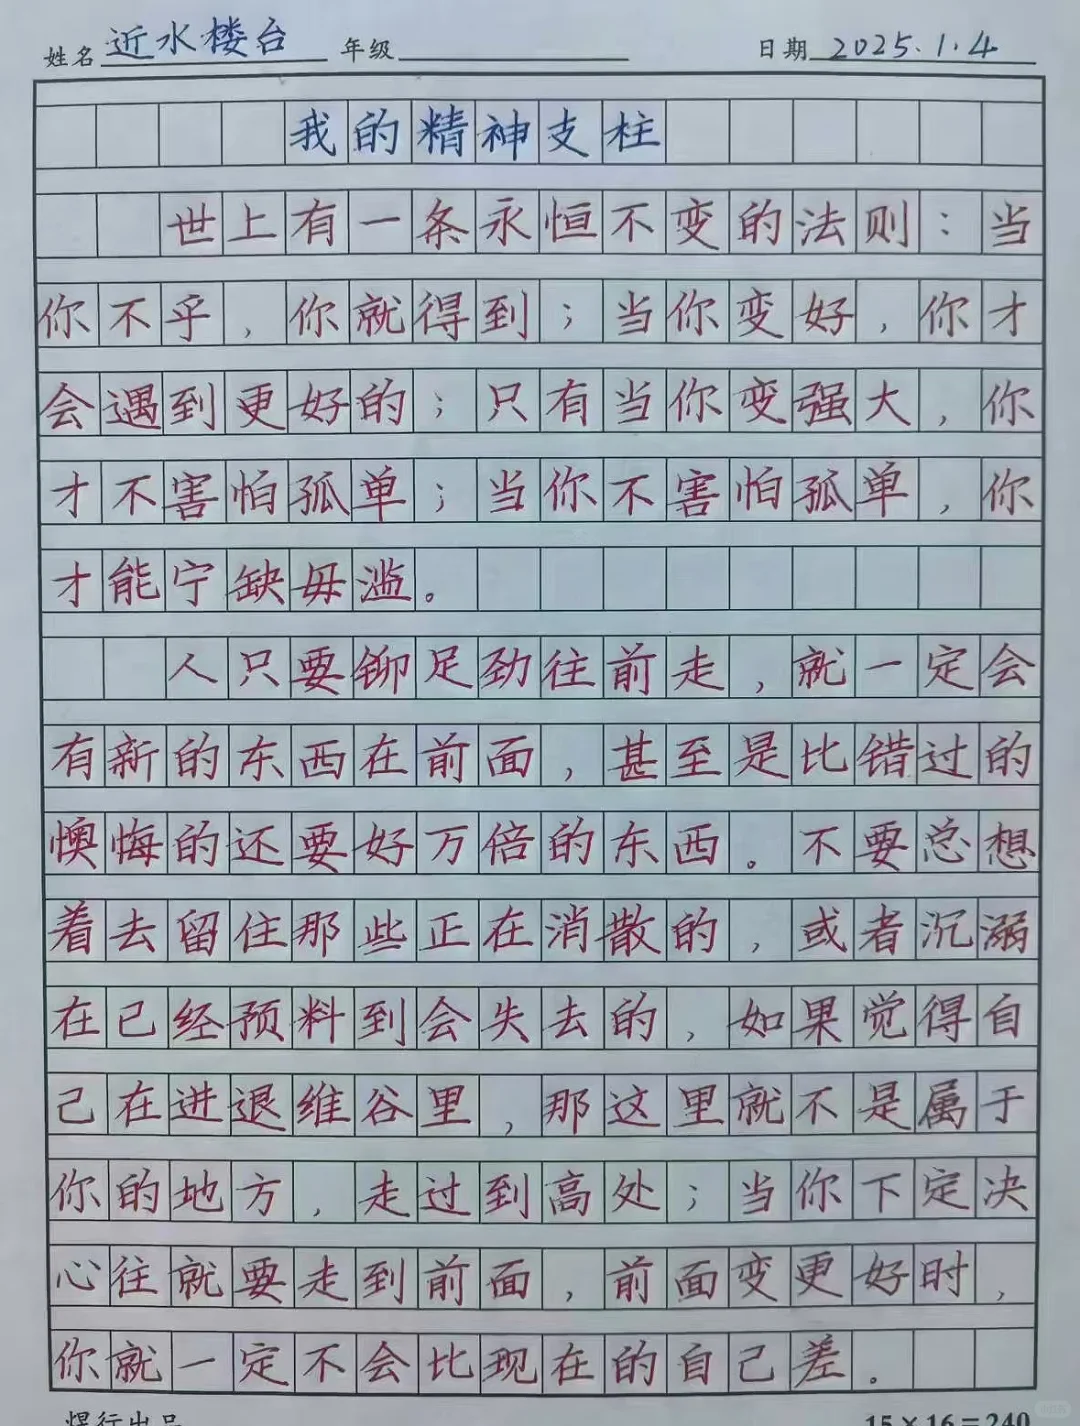 姓名 近水楼台 年级 日期 2025.1.4
我的精神支柱
世上有一条永恒不变的法则：当
你不乎，你就得到；当你变好，你才
会遇到更好的；只有当你变强大，你
才不害怕孤单；当你不害怕孤单，你
才能宁缺毋滥。
人只要铆足劲往前走，就一定会
有新的东西在前面，甚至是比错过的
懊悔的还要好万倍的东西。不要总想
着去留住那些正在消散的，或者沉溺
在已经预料到会失去的，如果觉得自
己在进退维谷里，那这里就不是属于
你的地方，走过到高处；当你下定决
心往就要走到前面，前面变更好时，
你就一定不会比现在的自己差。
煜行出品 15×16=240